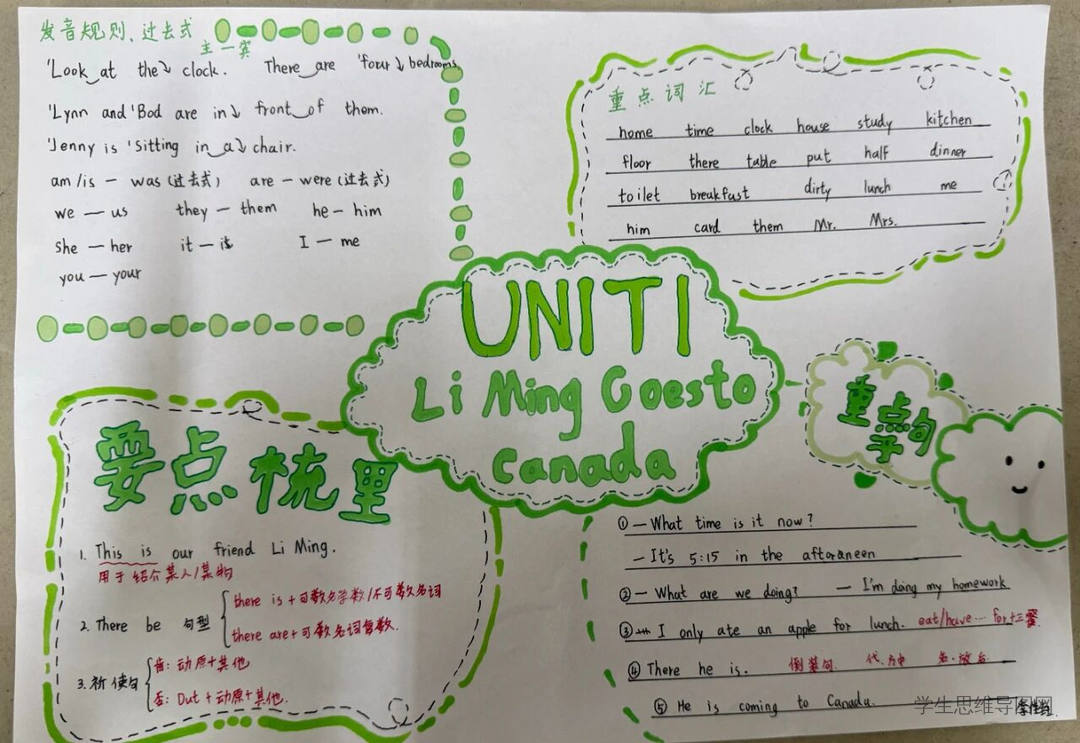 发音规则、过去式
主一宾
'Look at the↘ clock. There are 'four↘ bedrooms
'Lynn and 'Bod are in↘ front of them.
'Jenny is 'Sitting in a↘ chair.
am/is — was (过去式) are — were (过去式)
we — us they — them he — him
she — her it — it I — me
you — your
重点词汇
home time clock house study kitchen
floor there table put half dinner
toilet breakfast dirty lunch me
him card them Mr. Mrs.
UNIT1
Li Ming Goesto
Canada
要点梳里
1. This is our friend Li Ming.
用于绍介某人/某物
2. There be 句型
there is+可数名字数/不可数名词
there are+可数名词复数.
3. 祈使句
肯: 动原+其他
否: Dut+动原+其他.
重点句
①— What time is it now?
—It's 5:15 in the aftoraneen
②— What are we doing? — I'm doing my homework
③ I only ate an apple for lunch. eat/have…for+三餐
④ There he is. 倒装句
⑤ He is coming to Canada.
学生思维导图网